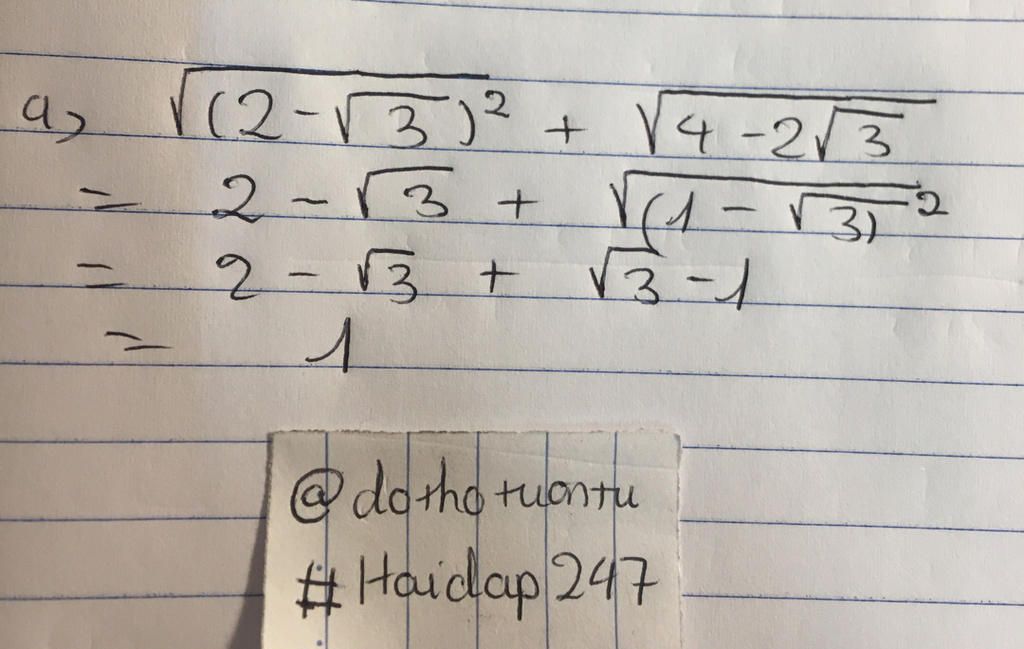 a, √(2-√3)² + √4-2√3
= 2 - √3 + √(1 - √3)²
= 2 - √3 + √3 - 1
= 1
@dothotuontu
#Haidap247